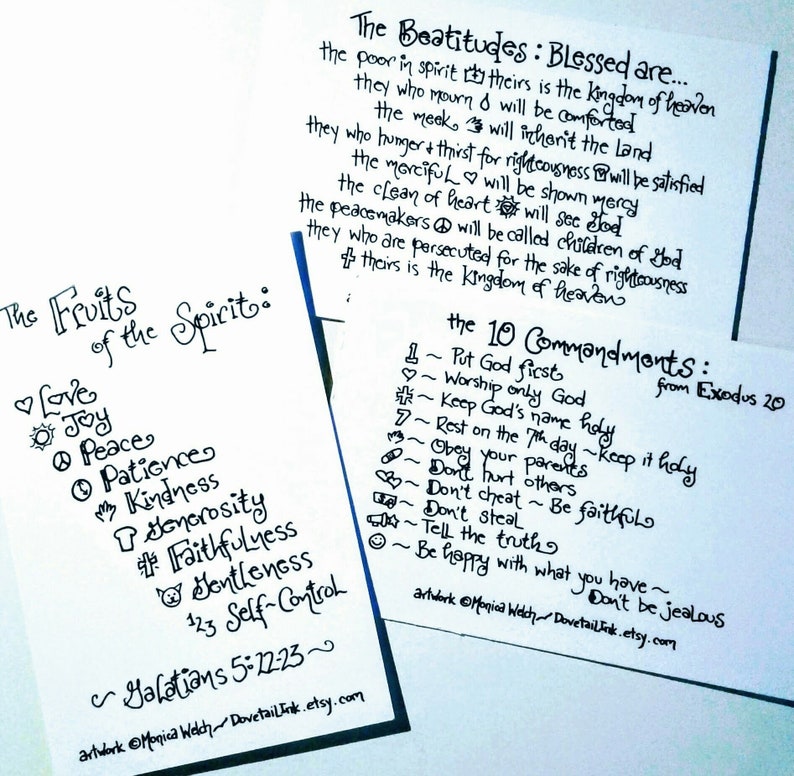 The Beatitudes: Blessed are...
the poor in spirit theirs is the Kingdom of heaven
they who mourn will be comforted
the meek will inherit the Land
they who hunger + thirst for righteousness will be satisfied
the merciful ♡ will be shown mercy
the clean of heart will see God
the peacemakers ☮ will be called children of God
they who are persecuted for the sake of righteousness
theirs is the Kingdom of heaven
The Fruits
of the Spirit:
♡ Love
Joy
☮ Peace
Patience
Kindness
Generosity
Faithfulness
Gentleness
123 Self~Control
~ Galatians 5:22-23 ~
artwork ©Monica Welch ~ DovetailInk.etsy.com
the 10 Commandments:
from Exodus 20
1 ~ Put God first
♡ ~ Worship only God
~ Keep God's name holy
7 ~ Rest on the 7th day ~ Keep it holy
~ Obey your parents
~ Don't hurt others
~ Don't cheat ~ Be faithful
~ Don't steal
~ Tell the truth
☺ ~ Be happy with what you have ~
Don't be jealous
artwork ©Monica Welch ~ DovetailInk.etsy.com